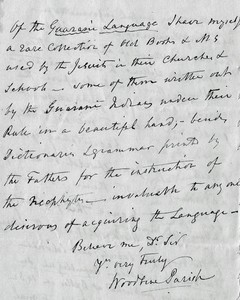 Of the Guarani Language I have myself
a rare Collection of Old Books & MS
used by the Jesuits in their Churches &
Schools – some of them written out
by the Guarani Indians under their
Rule in a beautiful hand, – besides
Dictionaries & grammar printed by
the Fathers for the instruction of
the Neophytes – invaluable to any one
desirous of acquiring the Language –
Believe me, Dr Sir
Yrs very truly
Woodbine Parish